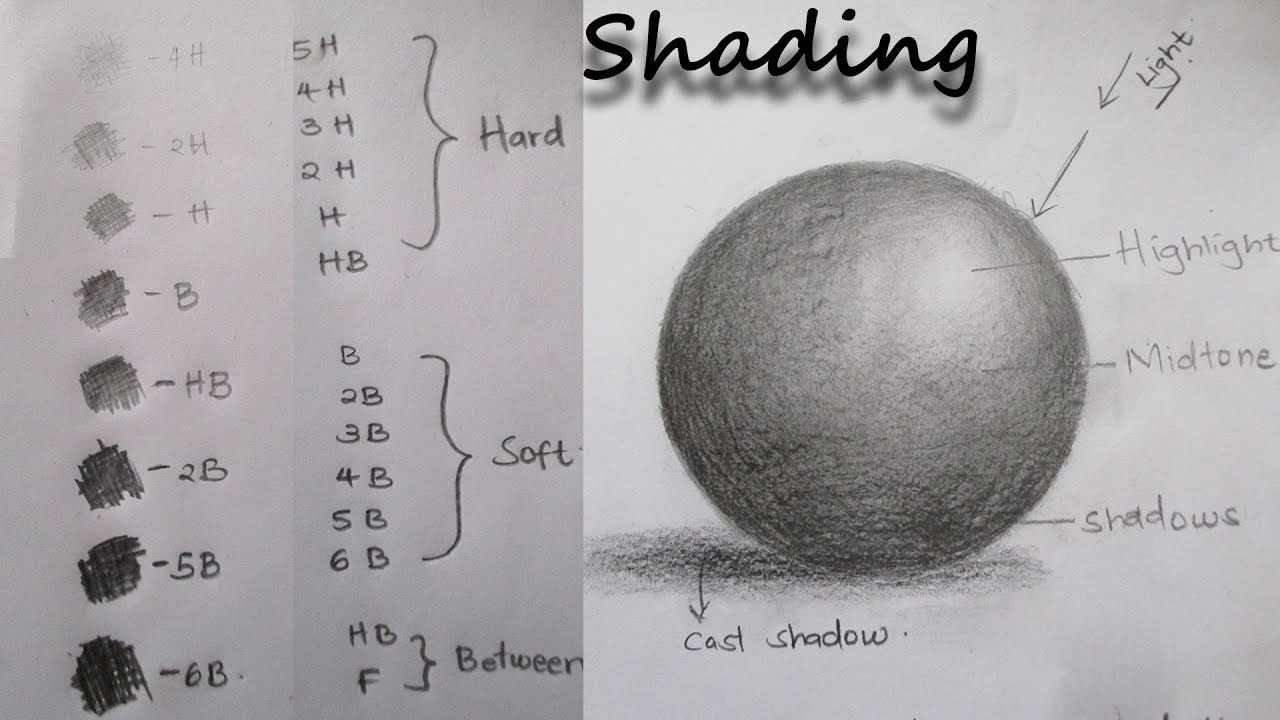 Shading
- 4H
- 2H
- H
- B
- HB
- 2B
- 5B
- 6B.
5H
4H
3H
2H
H
HB
Hard
B
2B
3B
4B
5B
6B
Soft
HB
F
Between
Light
Highlight
Midtone
Shadows
Cast shadow.